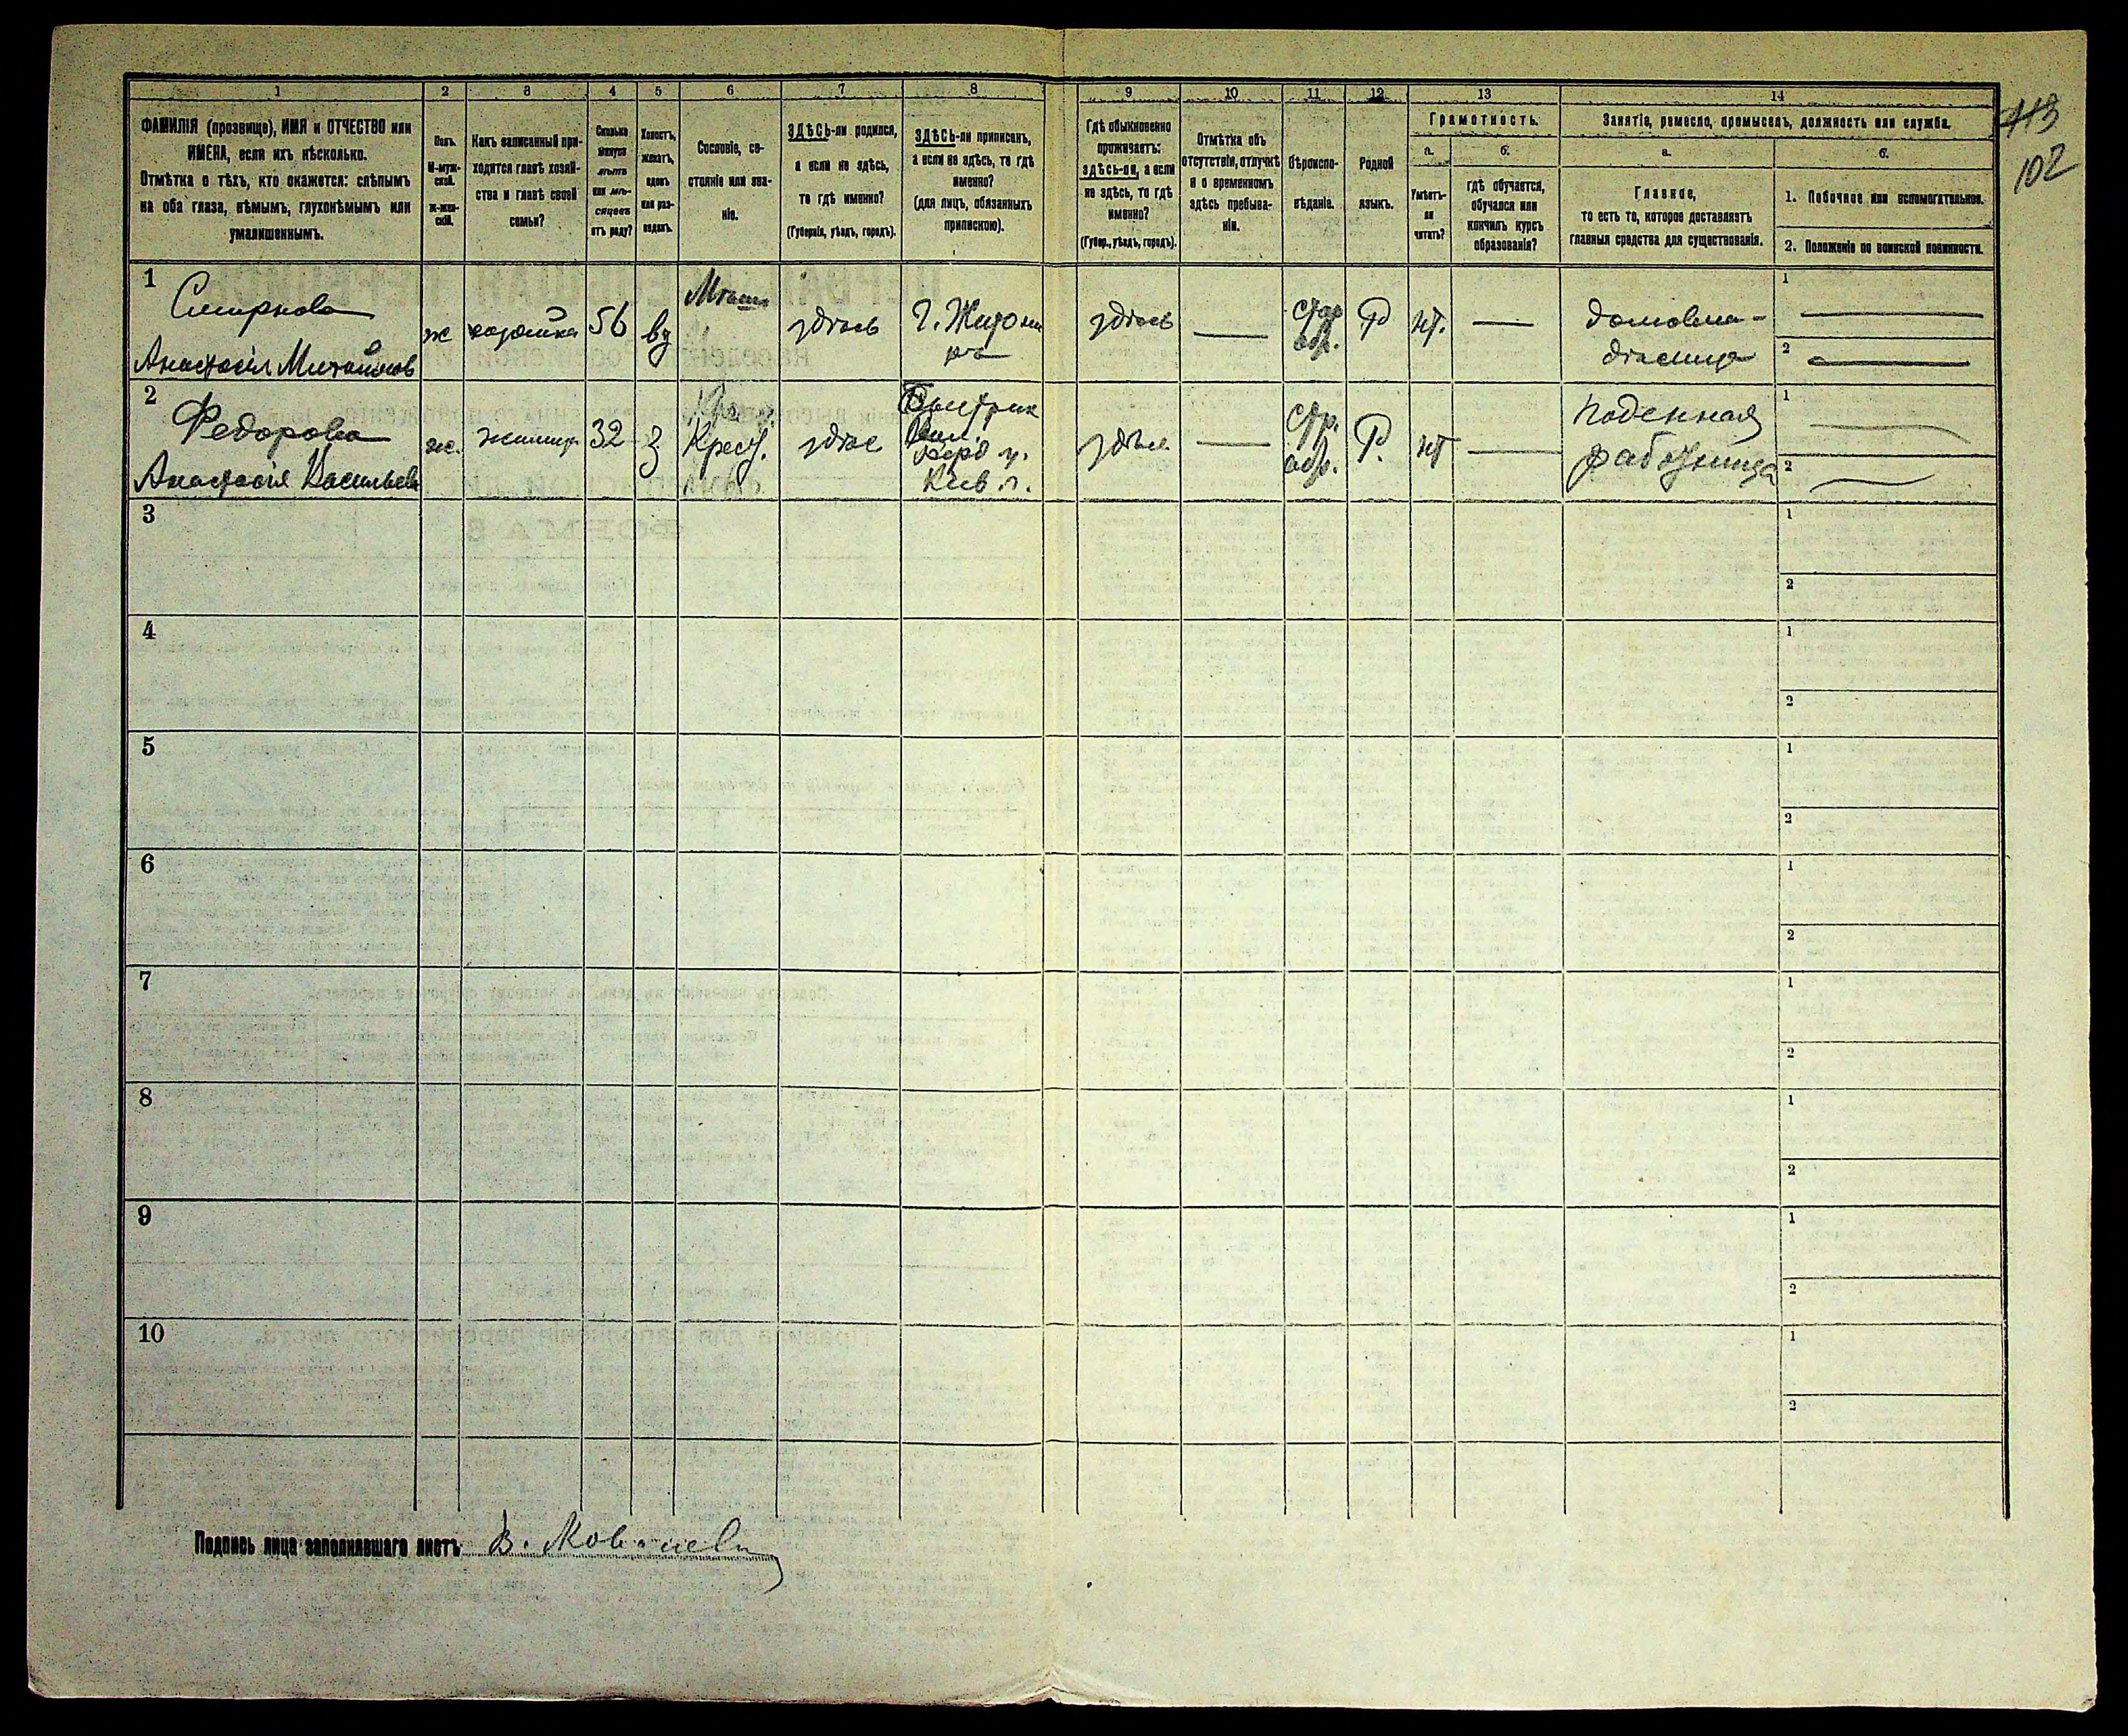 1 2 3 4 5 6 7 8 9 10 11 12 13 14
ФАМИЛІЯ (прозвище), ИМЯ и ОТЧЕСТВО или
ИМЕНА, если ихъ нѣсколько.
Отмѣтка о тѣхъ, кто окажется: слѣпымъ
на оба глаза, нѣмымъ, глухонѣмымъ или
умалишеннымъ.
Полъ.
М-муж-
ской.
ж-жен-
скій.
Какъ записанный при-
ходится главѣ хозяй-
ства и главѣ своей
семьи?
Сколько
минуло
лѣтъ
или мѣ-
сяцевъ
отъ роду?
Холостъ,
женатъ,
вдовъ
или раз-
веденъ.
Сословіе, со-
стояніе или зва-
ніе.
ЗДѢСЬ-ли родился,
а если не здѣсь,
то гдѣ именно?
(Губернія, уѣздъ, городъ).
ЗДѢСЬ-ли приписанъ,
а если не здѣсь, то гдѣ
именно?
(для лицъ, обязанныхъ
припискою).
Гдѣ обыкновенно
проживаетъ:
здѣсь-ли, а если
не здѣсь, то гдѣ
именно?
(Губер., уѣздъ, городъ).
Отмѣтка объ
отсутствіи, отлучкѣ
и о временномъ
здѣсь пребыва-
ніи.
Вѣроиспо-
вѣданіе.
Родной
языкъ.
Грамотность.
а.
Умѣетъ-
ли
читать?
б.
гдѣ обучается,
обучался или
кончилъ курсъ
образованія?
Занятіе, ремесло, промыселъ, должность или служба.
а.
Главное,
то есть то, которое доставляетъ
главныя средства для существованія.
б.
1. Побочное или вспомогательное.
2. Положеніе по воинской повинности.
113
102
1
Смирнова
Анастасія Михайлов
ж
хозяйка
56
вд
Мѣщ
здѣсь
г. Житоми
ра
здѣсь
—
стар
обр.
Р
нт.
—
домовла-
дѣлица
1 —
2 —
2
Федорова
Анастасія Васильева
ж.
жилица
32
з
Крест.
здѣс
Кив. г.
здѣсь
—
стр.
обр.
Р.
нт
—
поденная
работница
1 —
2 —
3
1
2
4
1
2
5
1
2
6
1
2
7
1
2
8
1
2
9
1
2
10
1
2
Подпись лица заполнявшаго листъ В.